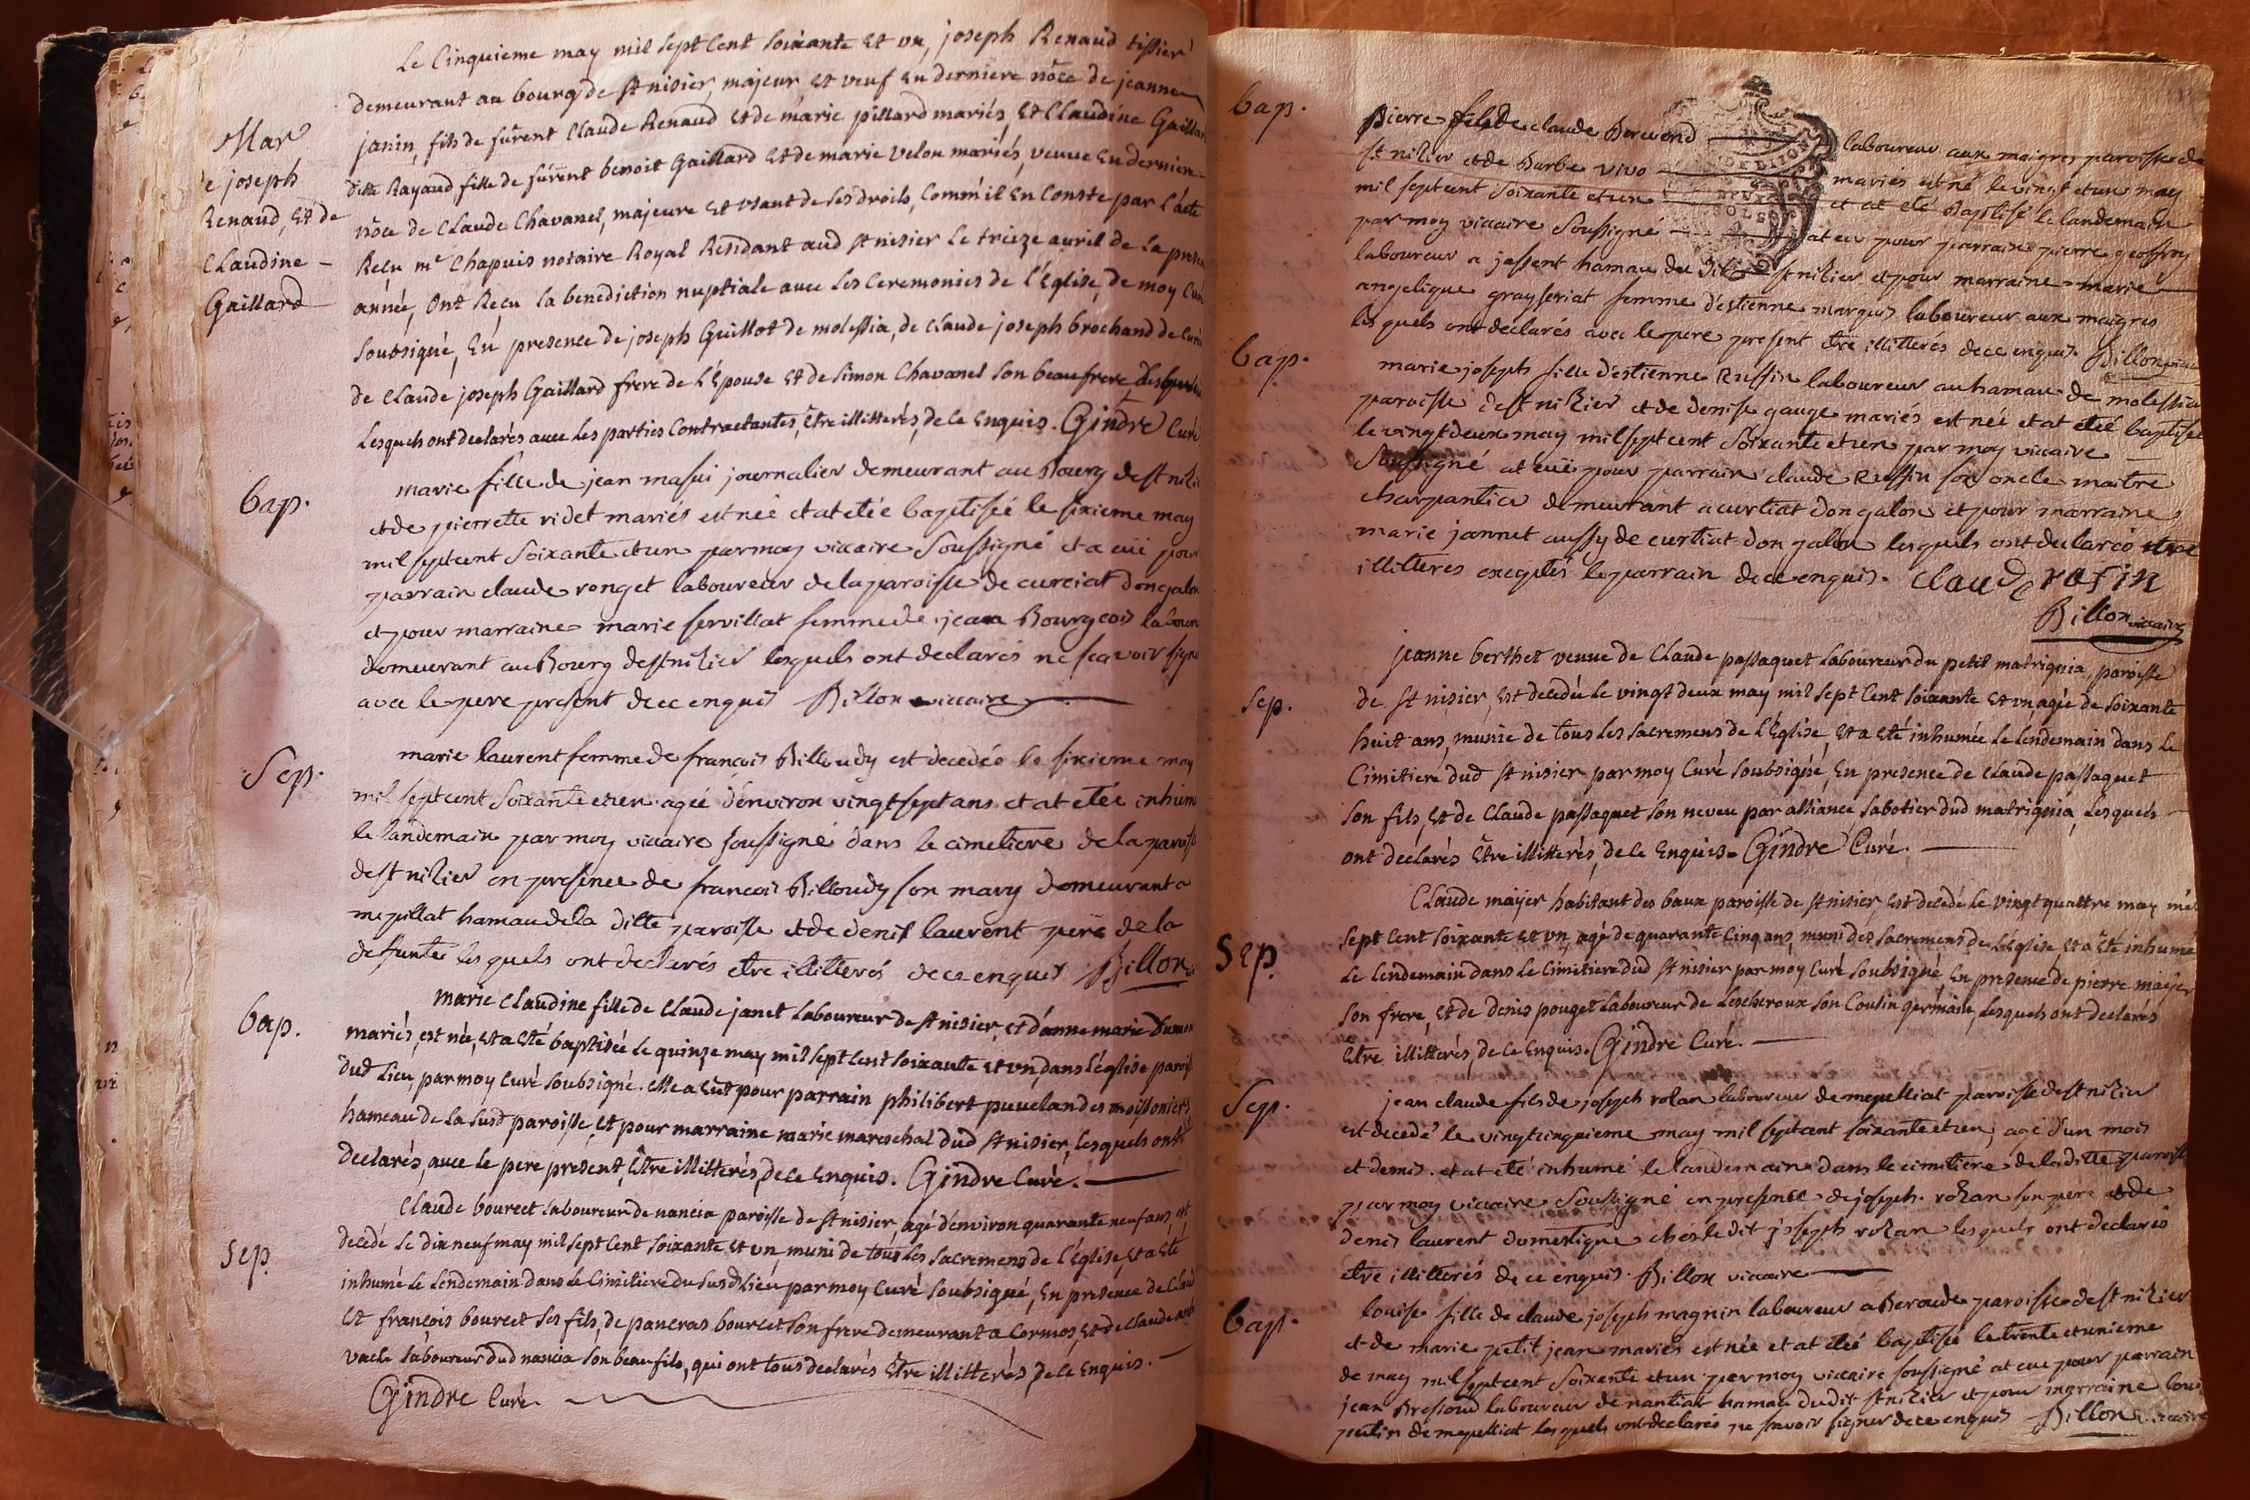 Le Cinquieme may mil sept Cent soixante et un, joseph Renaud tissier
demeurant au bourg de st nisier, majeur, et veuf en derniere nôce de jeanne
janin, fils de fûrent Claude Renaud et de marie pillard mariés, et Claudine Gaillar
ditte Rayaud fille de fûrent benoit Gaillard et de marie velon mariés, veuve en derniere
nôce de Claude Chavanel, majeure et usant de ses droits, Comm'il en Conste par l'acte
Recu me Chapuis notaire Royal Residant aud st nisier le trieze avril de la pres
année, ont Recu la benediction nuptiale avec les Ceremonies de l'Eglise, de moy Curé
soubsigné, En presence de joseph Guillot de molessia, de Claude joseph brochand de
de Claude joseph Gaillard frere de l'Epouse et de simon Chavanel son beaufrere,
Lesquels ont declarés avec les parties Contractantes, être illitterés, de ce Enquis. Gindre Curé
Mar
e joseph
Renaud, et de
Claudine
Gaillard
bap.
marie fille de jean masui journalier demeurant au Bourg de st nizi
et de pierrette videt mariés est née et at etée baptisée le sixieme may
mil sept cent soixante et un par moy vicaire soussigné et a eüe pour
parrain claude ronget laboureur de la paroisse de curciat dongalon
et pour marraine marie servillat femme de jean Bourgeois labour
demeurant au Bourg de st nizier lesquels ont declarés ne scavoir signe
avec le pere present de ce enquis Billon vicaire
Sep.
marie laurent femme de françois Billoudy est decedée le sixieme may
mil sept cent soixante et un agée d'environ vingt sept ans et at etée inhum
le landemain par moy vicaire soussigné dans le cimetiere de la paroiss
de st nizier en presence de françois Billoudy son mary demeurant a
mepillat hamau de la ditte paroisse et de denis laurent pere de la
defunte les quels ont declarés etre illitterés de ce enquis Billon
bap.
marie Claudine fille de Claude janet Laboureur de st nisier, et d'anne marie
mariés, est née, et a eté baptisée le quinze may mil sept Cent soixante et un, dans l'église parois
dud Lieu, par moy Curé soubsigné. elle a eut pour parrain philibert puvelan des moissoniers,
hameau de la susd paroisse, et pour marraine marie mareschal dud st nisier, Lesquels ont
declarés, avec le pere present, Être illitterés, de ce Enquis. Gindre Curé.
Sep.
Claude bourcet Laboureur de nancia paroisse de st nisier, agé d'environ quarante neuf ans, est
decedé le dix neuf may mil sept Cent soixante et un muni de tous les sacremens de l'Église, et a eté
inhumé le Lendemain dans le Cimitiere du susd Lieu par moy Curé soubsigné, En presence de Claude
et françois bourcet ses fils, de pancras bourcet son frere demeurant a Cormos, et de Claude
vache Laboureur dud nancia son beau fils, qui ont tous declarés Être illitterés, de ce Enquis.
Gindre Curé.
bap.
pierre fils de claude Bervend laboureur aux maigres paroisse de
st nizier et de Barbe vivo mariés est né le vingt et un may
mil sept cent soixante et un et at eté Baptisé le landemain
par moy vicaire soussigné at eu pour parrain pierre geoffray
laboureur a jassent hamau du dit st nizier et pour marraine marie
angelique grayseriat femme d'estienne marquis laboureur aux maigres
lesquels ont declarés avec le pere present etre illitterés de ce enquis. Billon
bap.
marie joseph fille d'estienne Ruffin laboureur au hamau de molessia
paroisse de st nizier et de denise gauge mariés est née et at etéé baptisée
le vingt deux may mil sept cent soixante et un par moy vicaire
soussigné at euë pour parrain claude Ruffin son oncle maitre
charpantier demeurant a curtiat dongalon et pour marraine
marie jannet aussy de curtiat dongalon lesquels ont declarés etre
illitterés exeptés le parrain de ce enquis. Claude rofin
Billon vicaire
Sep.
jeanne berthet veuve de Claude passaquet Laboureur du petit matrignia, paroisse
de st nisier, est decedée le vingt deux may mil sept Cent soixante et un agée de soixante
huit ans, munie de tous les sacremens de l'Église, et a eté inhumée le lendemain dans le
Cimitiere dud st nisier par moy Curé soubsigné, En presence de Claude passaquet
son fils, et de Claude passaquet son neveu par alliance sabotier dud matrignia, Lesquels
ont declarés Être illitterés, de ce Enquis. Gindre Curé.
Sep.
Claude maiier habitant des baux paroisse de st nisier, est decedé le vingt quattre may mil
sept Cent soixante et un agé de quarante Cinq ans, muni des sacremens de l'église, et a été inhumé
Le Lendemain dans le Cimitiere dud st nisier par moy Curé soubsigné En presence de pierre maiier
son frere, et de denis pouget Laboureur de Lescheroux son Cousin germain, Lesquels ont declarés
être illitterés, de ce Enquis. Gindre Curé.
Sep.
jean claude fils de joseph rozan laboureur de mepelliat paroisse de st nizier
est decedé le vingt cinquieme may mil sept cent soixante et un, agé d'un mois
et demis. et at eté inhumé le landemain dans le cimitiere de la ditte paroisse
par moy vicaire soussigné en presence de joseph rozan son pere et de
denis laurent domestique chés le dit joseph rozan lesquels ont declarés
etre illitterés de ce enquis. Billon vicaire
bap.
louise fille de claude joseph magnin laboureur a Beroude paroisse de st nizier
et de marie petit jean mariés est née et at etéé baptisée le trente et unieme
de may mil sept cent soixante et un par moy vicaire soussigné at eue pour parrain
jean Bressoud laboureur de nantiat hamau du dit st nizier et pour marraine
putin de mepelliat lesquels ont declarés ne savoir signer de ce enquis Billon vicaire